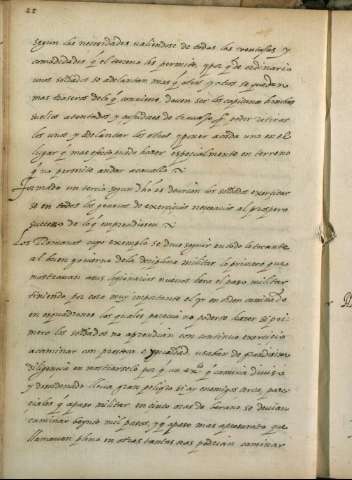 22
segun las necesidades valiendose de todas las ventajas y
comodidades q el terreno les permite, y por q de ordinario
unos soldados se adelantan mas q otros y otros se quedan
mas traseros de lo q conviene, deven ser los capitanes hombres
sueltos alentados, y sufridores de trauajo p poder retirar
los unos, y adelantar los otros y poner a cada uno en el
lugar q mas efecto pueda hazer especialmente en terreno
q no permite andar a cauallo
formado un tercio segun dho es deurian los soldados exercitar
se en todos los generos de exercicios necesarios al prospero
successo de lo q emprendieren
Los Romanos cuyo exemplo se deue seguir en todo lo tocante
al buen gouierno de la disciplina militar lo primero que
mostrauan a sus legionarios nuevos hera el passo militar
tiniendo por cosa muy importante el yr en orden caminando
en esquadrones los quales parecia no poderse hazer si pri
mero los soldados no aprendian con continuo exercicio
a caminar con presteza e ygualdad, usaban de grandissima
diligencia en mostrarselo por q un exto q camina diuiso
y desordenado lleua gran peligro si ay enemigos cerca, pare
ciales q a passo militar en cinco oras de berano se deuian
caminar beynte mil pasos, y a passo mas apresurado que
llamauan pleno en otras tantas oras podrian caminar